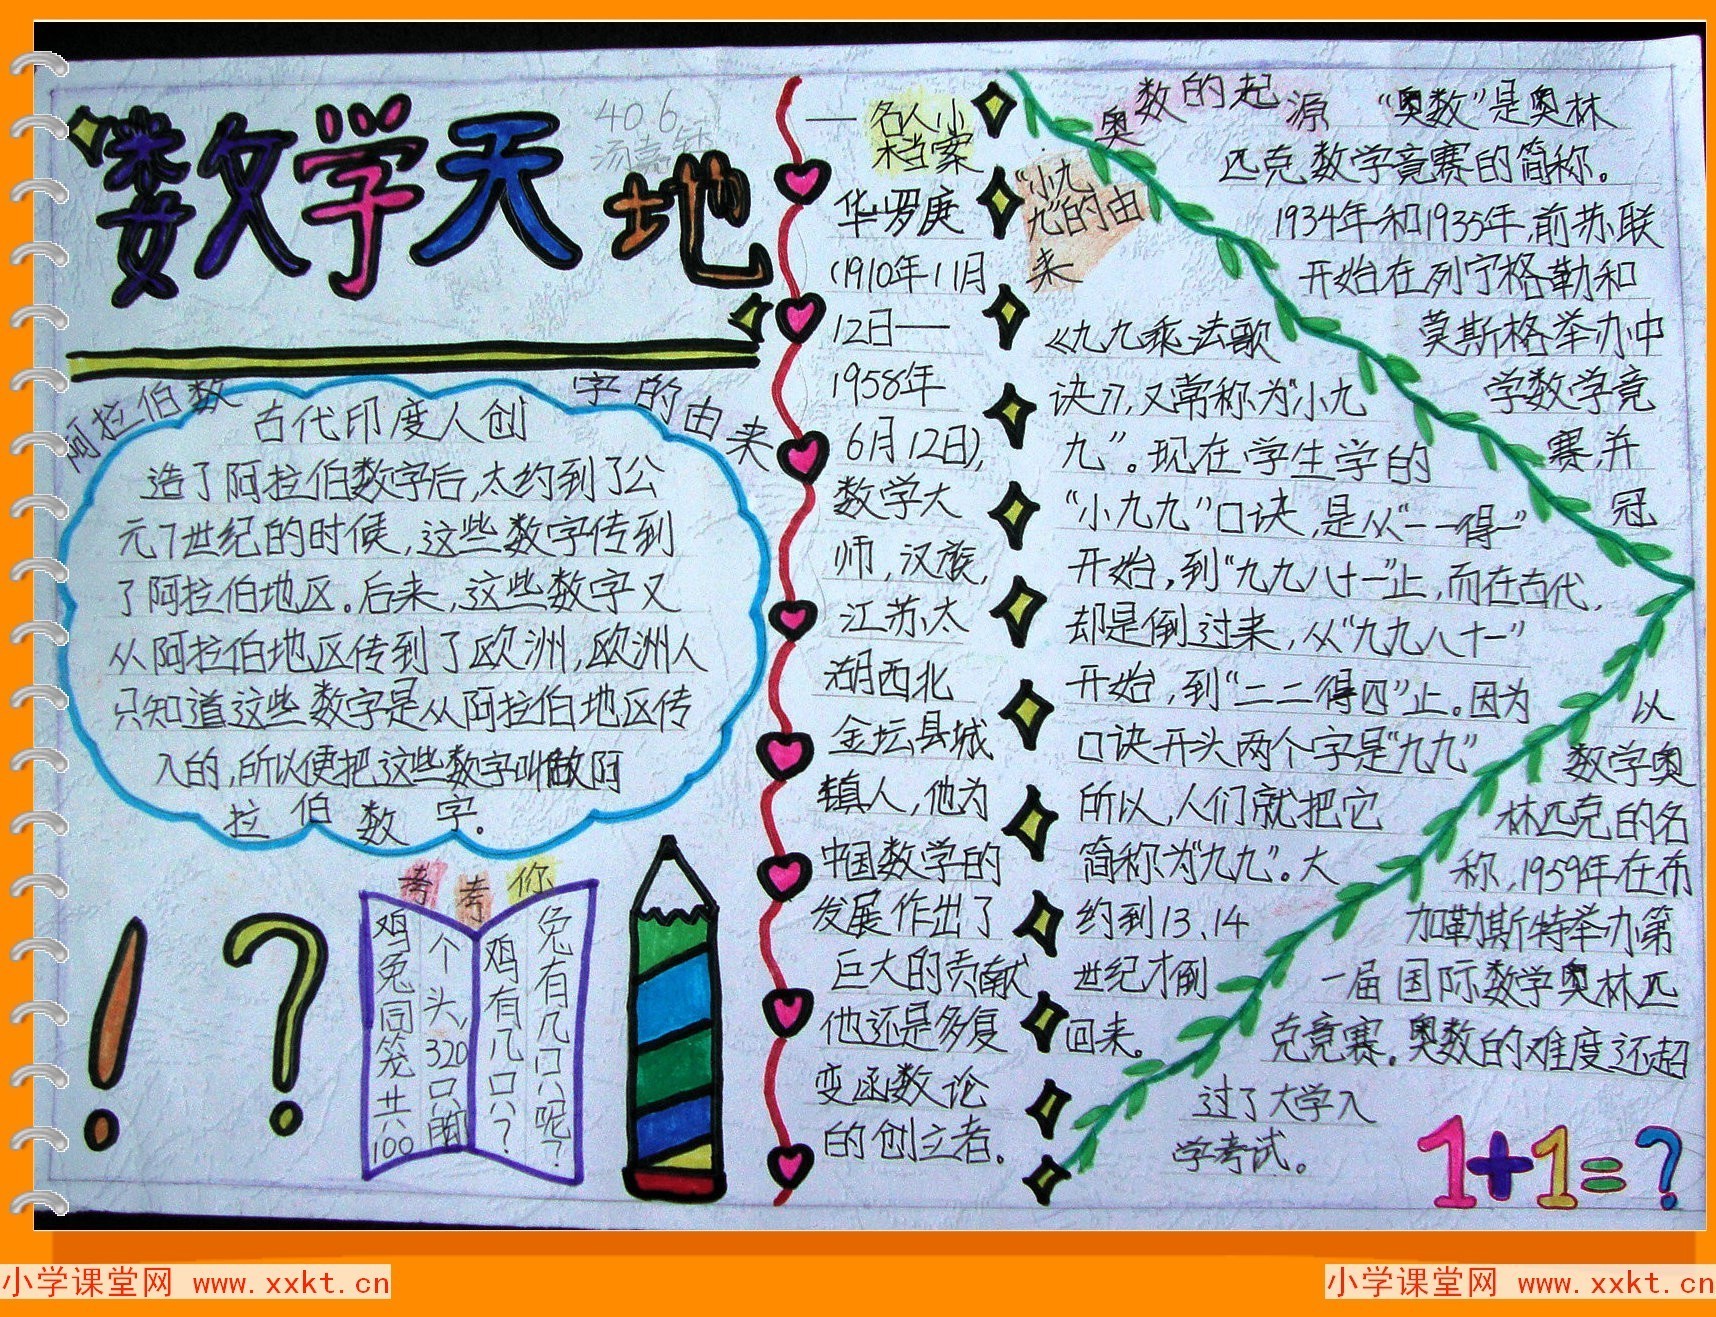 数学天地
40.6
阿拉伯数字的由来
古代印度人创
造了阿拉伯数字后,太约到了公
元7世纪的时候,这些数字传到
了阿拉伯地区。后来,这些数字又
从阿拉伯地区传到了欧洲,欧洲人
只知道这些数字是从阿拉伯地区传
入的,所以便把这些数字叫做阿
拉伯数字。
考考你
鸡兔同笼共100
个头,320只脚
鸡有几只?
兔有几只呢?
名人小
档案
华罗庚
(1910年11月
12日——
1958年
6月12日),
数学大
师,汉族,
江苏太
湖西北
金坛县城
镇人,他为
中国数学的
发展作出了
巨大的贡献
他还是多复
变函数论
的创立者。
“小九
九”的由
来
《九九乘法歌
诀》,又常称为“小九
九”。现在学生学的
“小九九”口诀,是从“一一得一”
开始,到“九九八十一”止,而在古代,
却是倒过来,从“九九八十一”
开始,到“二二得四”止。因为
口诀开头两个字是“九九”
所以,人们就把它
简称为“九九”。大
约到13、14
世纪才倒
回来。
奥数的起源
“奥数”是奥林
匹克数学竟赛的简称。
1934年和1935年,前苏联
开始在列宁格勒和
莫斯格举办中
学数学竟
赛,并
冠
以
数学奥
林匹克的名
称,1959年在布
加勒斯特举办第
一届国际数学奥林匹
克竟赛。奥数的难度还超
过了大学入
学考试。
1+1=?
小学课堂网 www.xxkt.cn
小学课堂网 www.xxkt.cn